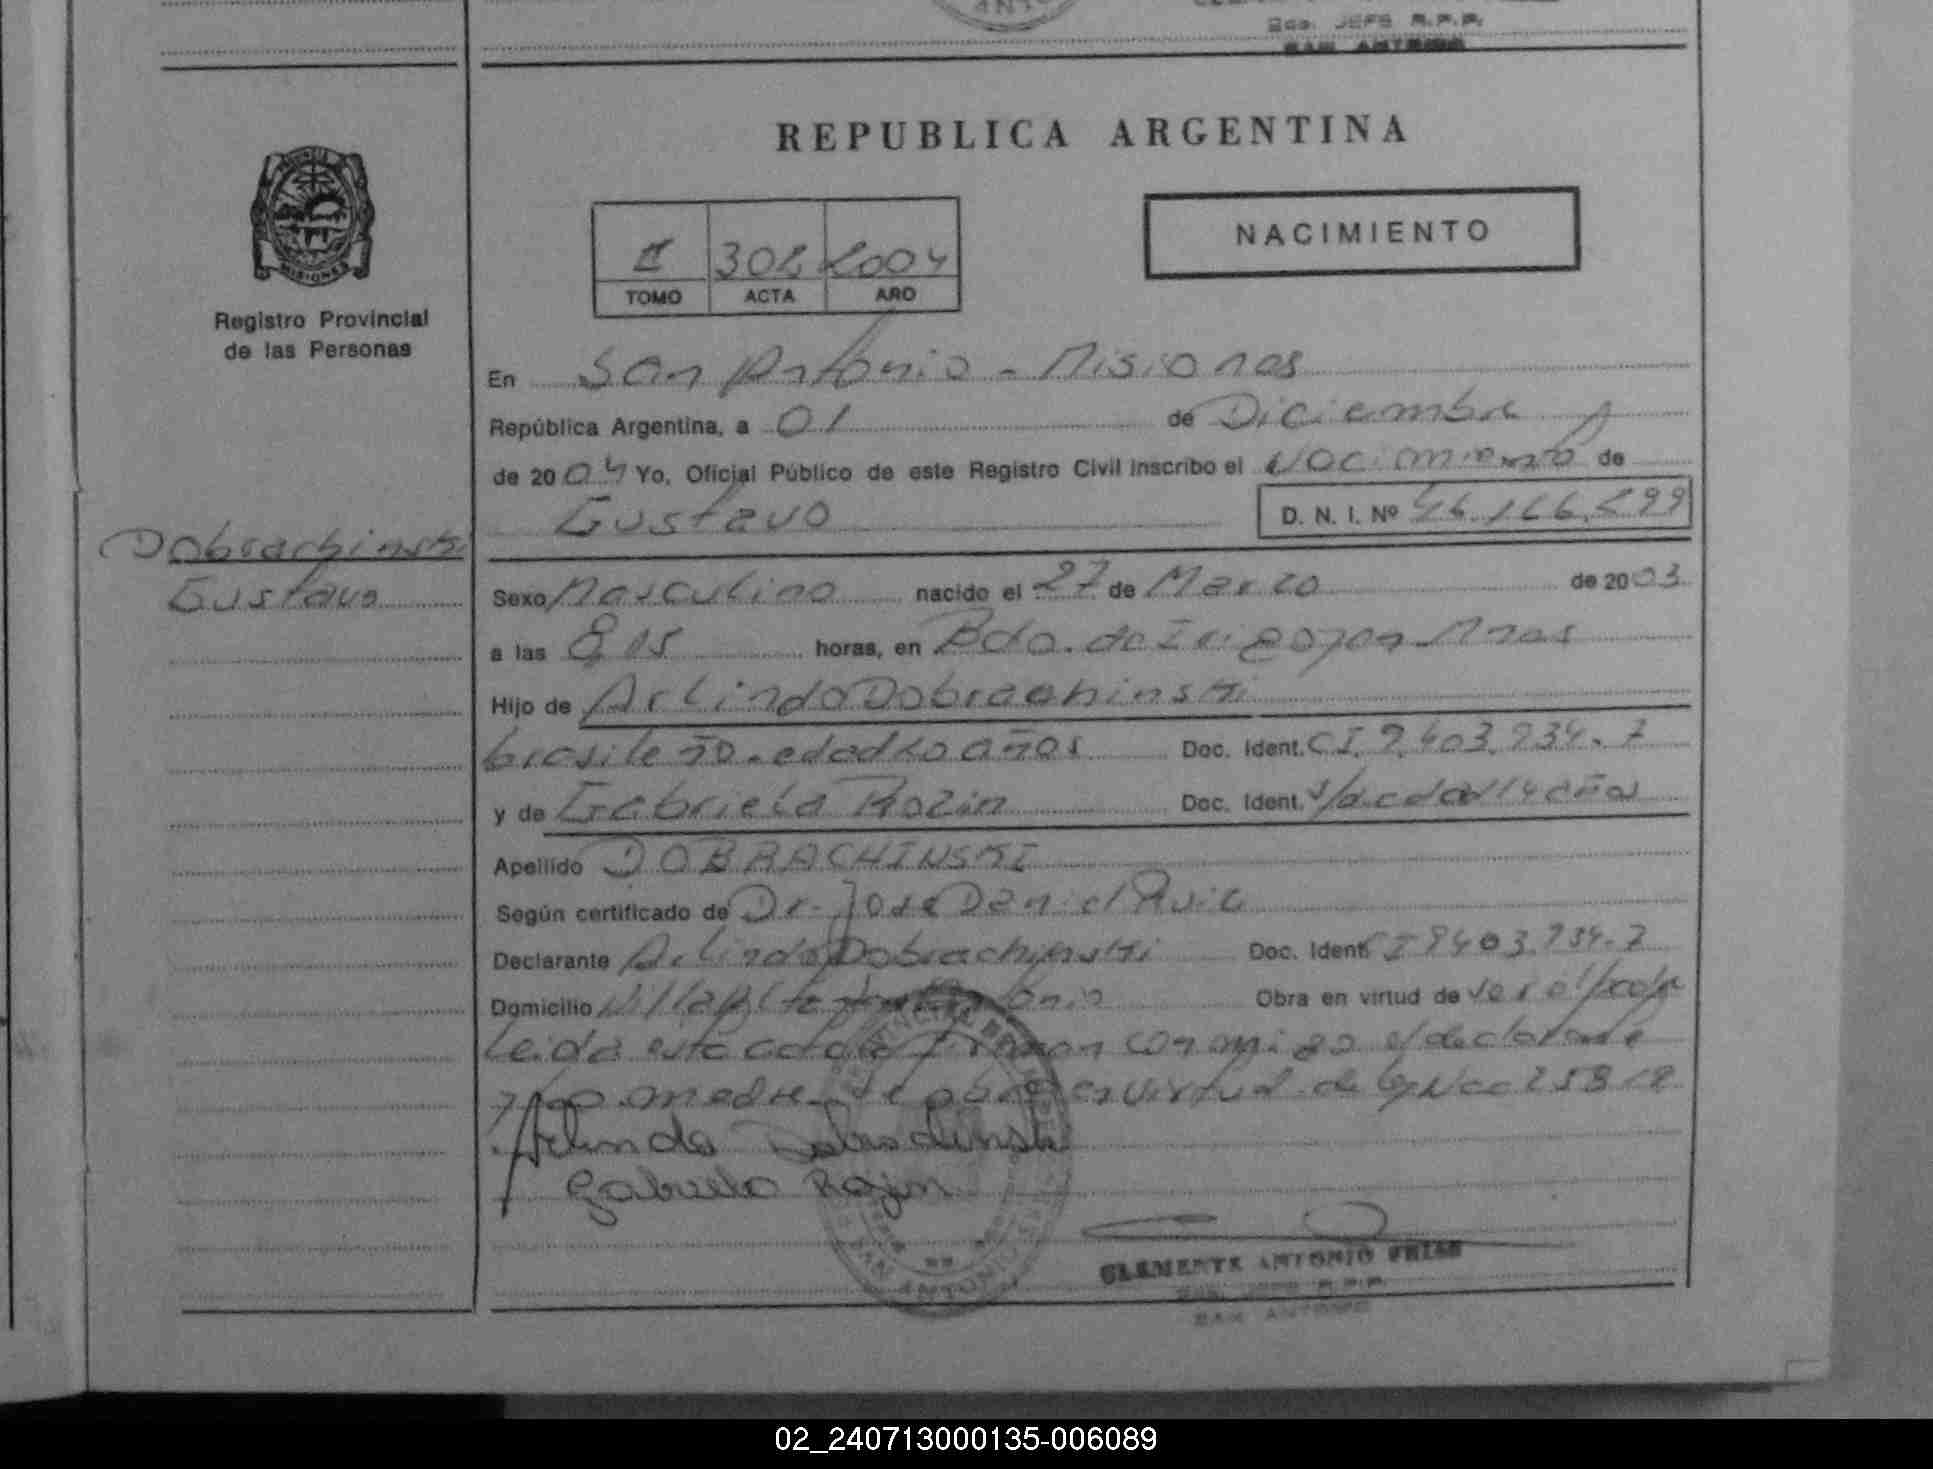 ANTO
Sdo. JEFE R.P.P.
SAN ANTONIO
PROVINCIA DE
MISIONES
Registro Provincial
de las Personas
Dobrachinski
Gustavo
REPUBLICA ARGENTINA
302 2004
TOMO ACTA AÑO
NACIMIENTO
En San Antonio - Misiones
República Argentina, a 01 de Diciembre
de 2004 Yo, Oficial Público de este Registro Civil inscribo el Nacimiento de
Gustavo D. N. I. Nº
Sexo Masculino nacido el 27 de Marzo de 2003
a las 8,05 horas, en Bdo. de Irigoyen Mnes
Hijo de Arlindo Dobrachinski
brasileño. edad 20 años Doc. Ident. CI. 9.403.934.7
y de Gabriela Rozin Doc. Ident. s/d. edad 14 años
Apellido DOBRACHINSKI
Según certificado de Dr. Jose Daniel
Declarante Arlindo Dobrachinski Doc. Ident. CI 9403.934.7
Domicilio Villa Antonio Obra en virtud de
Leida esta acta la firman conmigo el declarante
madre obra en virtud de
Arlindo Dobrachinski
Gabriela Rozin
SAN ANTONIO
CLEMENTE ANTONIO FRIAS
Sdo. JEFE R.P.P.
SAN ANTONIO
02_240713000135-006089